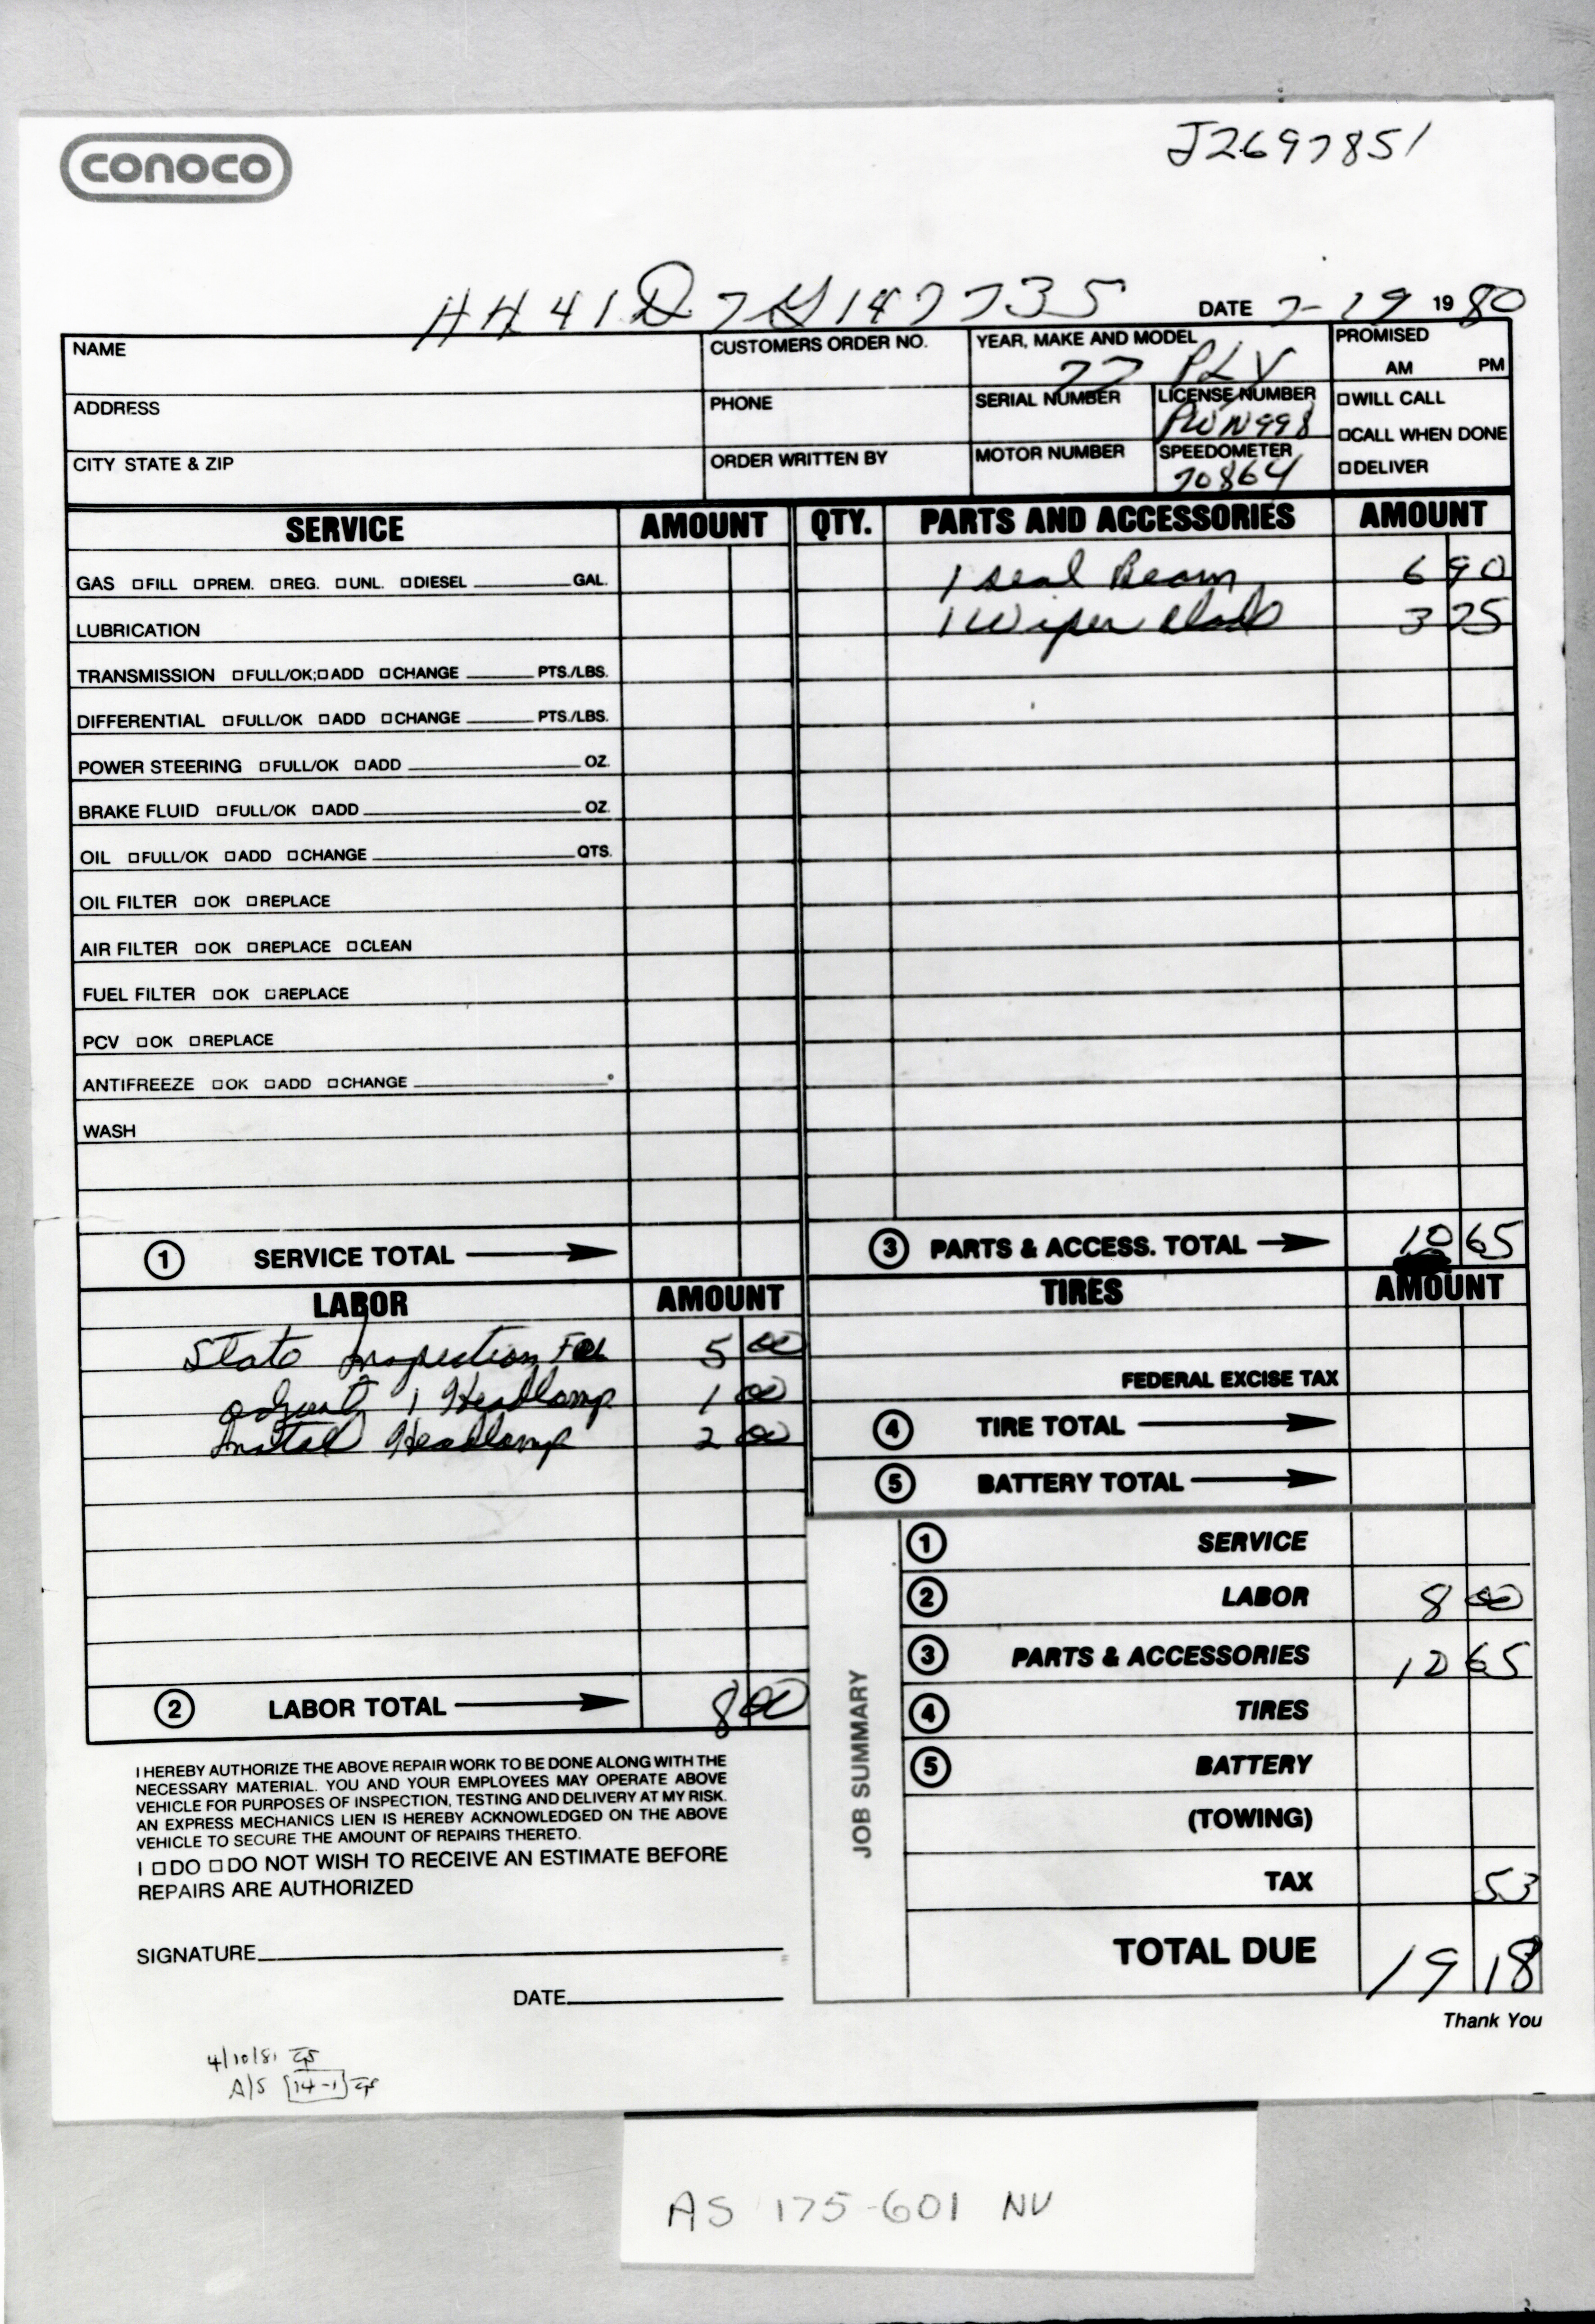 conoco
J2697851
HH41D7G147735 DATE 7-29 1980
NAME CUSTOMERS ORDER NO. YEAR, MAKE AND MODEL 77 PLY PROMISED AM PM
ADDRESS PHONE SERIAL NUMBER LICENSE NUMBER PWN998 □WILL CALL
□CALL WHEN DONE
CITY STATE & ZIP ORDER WRITTEN BY MOTOR NUMBER SPEEDOMETER 70864 □DELIVER
SERVICE AMOUNT QTY. PARTS AND ACCESSORIES AMOUNT
GAS □FILL □PREM. □REG. □UNL. □DIESEL ______GAL. 1 seal Beam 6 90
LUBRICATION 1 Wiper Blade 3 75
TRANSMISSION □FULL/OK;□ADD □CHANGE ______ PTS./LBS.
DIFFERENTIAL □FULL/OK □ADD □CHANGE ______ PTS./LBS.
POWER STEERING □FULL/OK □ADD ______ OZ.
BRAKE FLUID □FULL/OK □ADD ______ OZ.
OIL □FULL/OK □ADD □CHANGE ______ QTS.
OIL FILTER □OK □REPLACE
AIR FILTER □OK □REPLACE □CLEAN
FUEL FILTER □OK □REPLACE
PCV □OK □REPLACE
ANTIFREEZE □OK □ADD □CHANGE ______°
WASH
1 SERVICE TOTAL → 3 PARTS & ACCESS. TOTAL → 10 65
LABOR AMOUNT TIRES AMOUNT
State Inspection Fee 5 00
adjust 1 Headlamp 1 00 FEDERAL EXCISE TAX
Instal Headlamp 2 00 4 TIRE TOTAL →
5 BATTERY TOTAL →
JOB SUMMARY
1 SERVICE
2 LABOR 8 00
3 PARTS & ACCESSORIES 10 65
2 LABOR TOTAL → 8 00 4 TIRES
5 BATTERY
(TOWING)
TAX 53
TOTAL DUE 19 18
Thank You
I HEREBY AUTHORIZE THE ABOVE REPAIR WORK TO BE DONE ALONG WITH THE
NECESSARY MATERIAL. YOU AND YOUR EMPLOYEES MAY OPERATE ABOVE
VEHICLE FOR PURPOSES OF INSPECTION, TESTING AND DELIVERY AT MY RISK.
AN EXPRESS MECHANICS LIEN IS HEREBY ACKNOWLEDGED ON THE ABOVE
VEHICLE TO SECURE THE AMOUNT OF REPAIRS THERETO.
I □DO □DO NOT WISH TO RECEIVE AN ESTIMATE BEFORE
REPAIRS ARE AUTHORIZED
SIGNATURE______
DATE______
4/10/81
A/S [14-1]
AS 175-601 NV